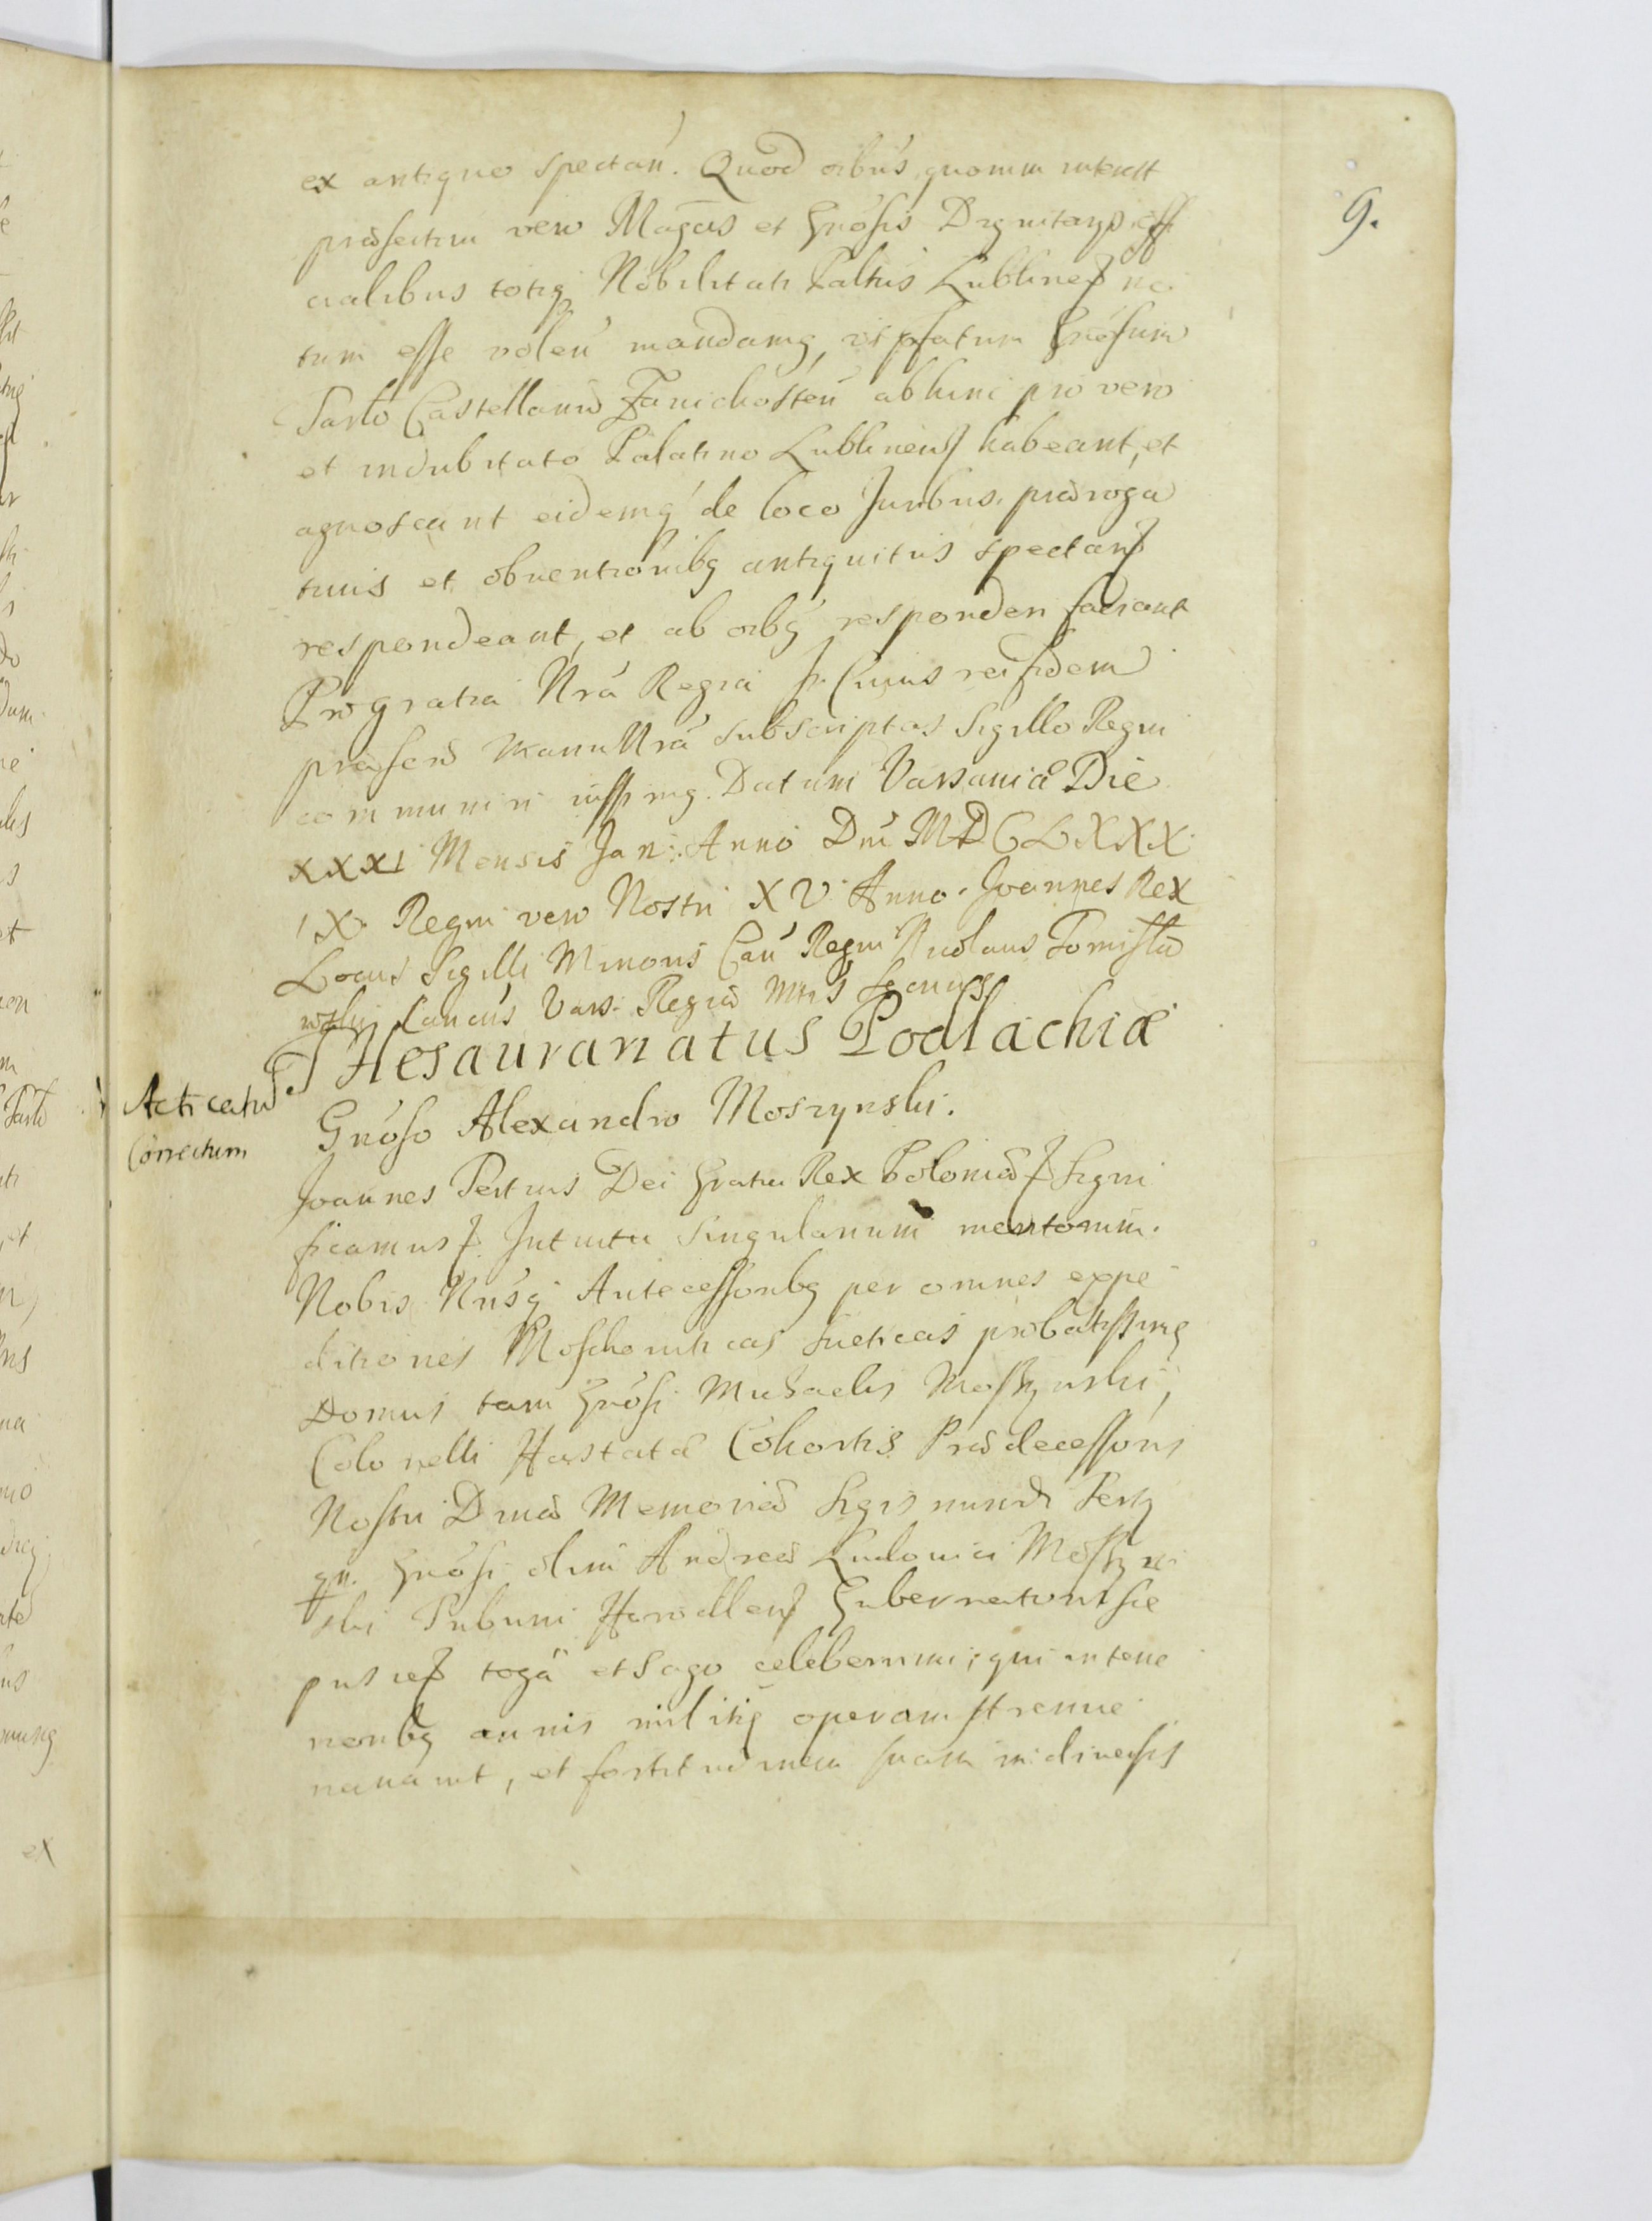 9.
ex antiquo spectań. Quod oibús, quorum interest
præsertim vero Magcis et Gnosis Dignitarys offi
cialibus totiq Nobilitati Paltus Lublineń no
tum esse voleń mandamq, ut pfatum Gnosum
Tarło Castellanū Zawichosteń abhinc pro vero
et indubitato Palatino Lublineń habeant, et
agnoscant eidemq de loco Juribus, præroga
tivis et obventionibq antiquitus spectań
respondeant, et ab oibq responderi faciant
Pro gratia Nrá Regia In Cuius rei fidem
præsens Manu Nrá subscriptas Sigillo Regni
communiri iussimq. Datum Varsaviæ Die
XXXI Mensis Jan: Anno Dni MDCLXXX
IX Regni vero Nostri XV Anno. Joannes Rex
Locus Sigilli Minoris Can Regni Nicolaus Tomisła
wski Cancus Vars: Regiæ Mtis Secrius
THesauranatus Podlachiæ
Acticatū
Correctum
Gnóso Alexandro Moszynski.
Joannes Tertius Dei Gratia Rex Poloniæ Signi
ficamus Intuitu singularium meritorum
Nobis Nrisq Antecessoribq per omnes expe
ditiones Moschoviticas Sueticas probatissimq
Domus tam Gnósi Michaelis Moszynski,
Colonelli Hastatæ Cohortis Prædecessoris
Nostri Divæ Memoriæ Sigismundi Terty
qu. Gnósi olim Andreæ Ludovici Moszyn
ski Tribuni Gubernatoris
toga et Sago celeberrimi; qui in tene
rioribq annis militiq operam strenue
navarunt, et fortitudinem suam in diversis